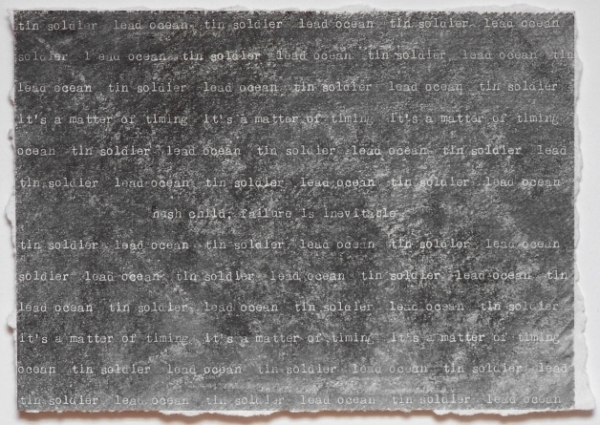 tin soldier lead ocean tin soldier lead ocean tin soldier lead ocean
soldier lead ocean tin soldier lead ocean tin soldier lead ocean tin
lead ocean tin soldier lead ocean tin soldier lead ocean tin soldier
it's a matter of timing it's a matter of timing it's a matter of timing
ocean tin soldier lead ocean tin soldier lead ocean tin soldier lead
tin soldier lead ocean tin soldier lead ocean tin soldier lead ocean
hush child, failure is inevitable
tin soldier lead ocean tin soldier lead ocean tin soldier lead ocean
soldier lead ocean tin soldier lead ocean tin soldier lead ocean tin
lead ocean tin soldier lead ocean tin soldier lead ocean tin soldier
it's a matter of timing it's a matter of timing it's a matter of timing
ocean tin soldier lead ocean tin soldier lead ocean tin soldier lead
tin soldier lead ocean tin soldier lead ocean tin soldier lead ocean